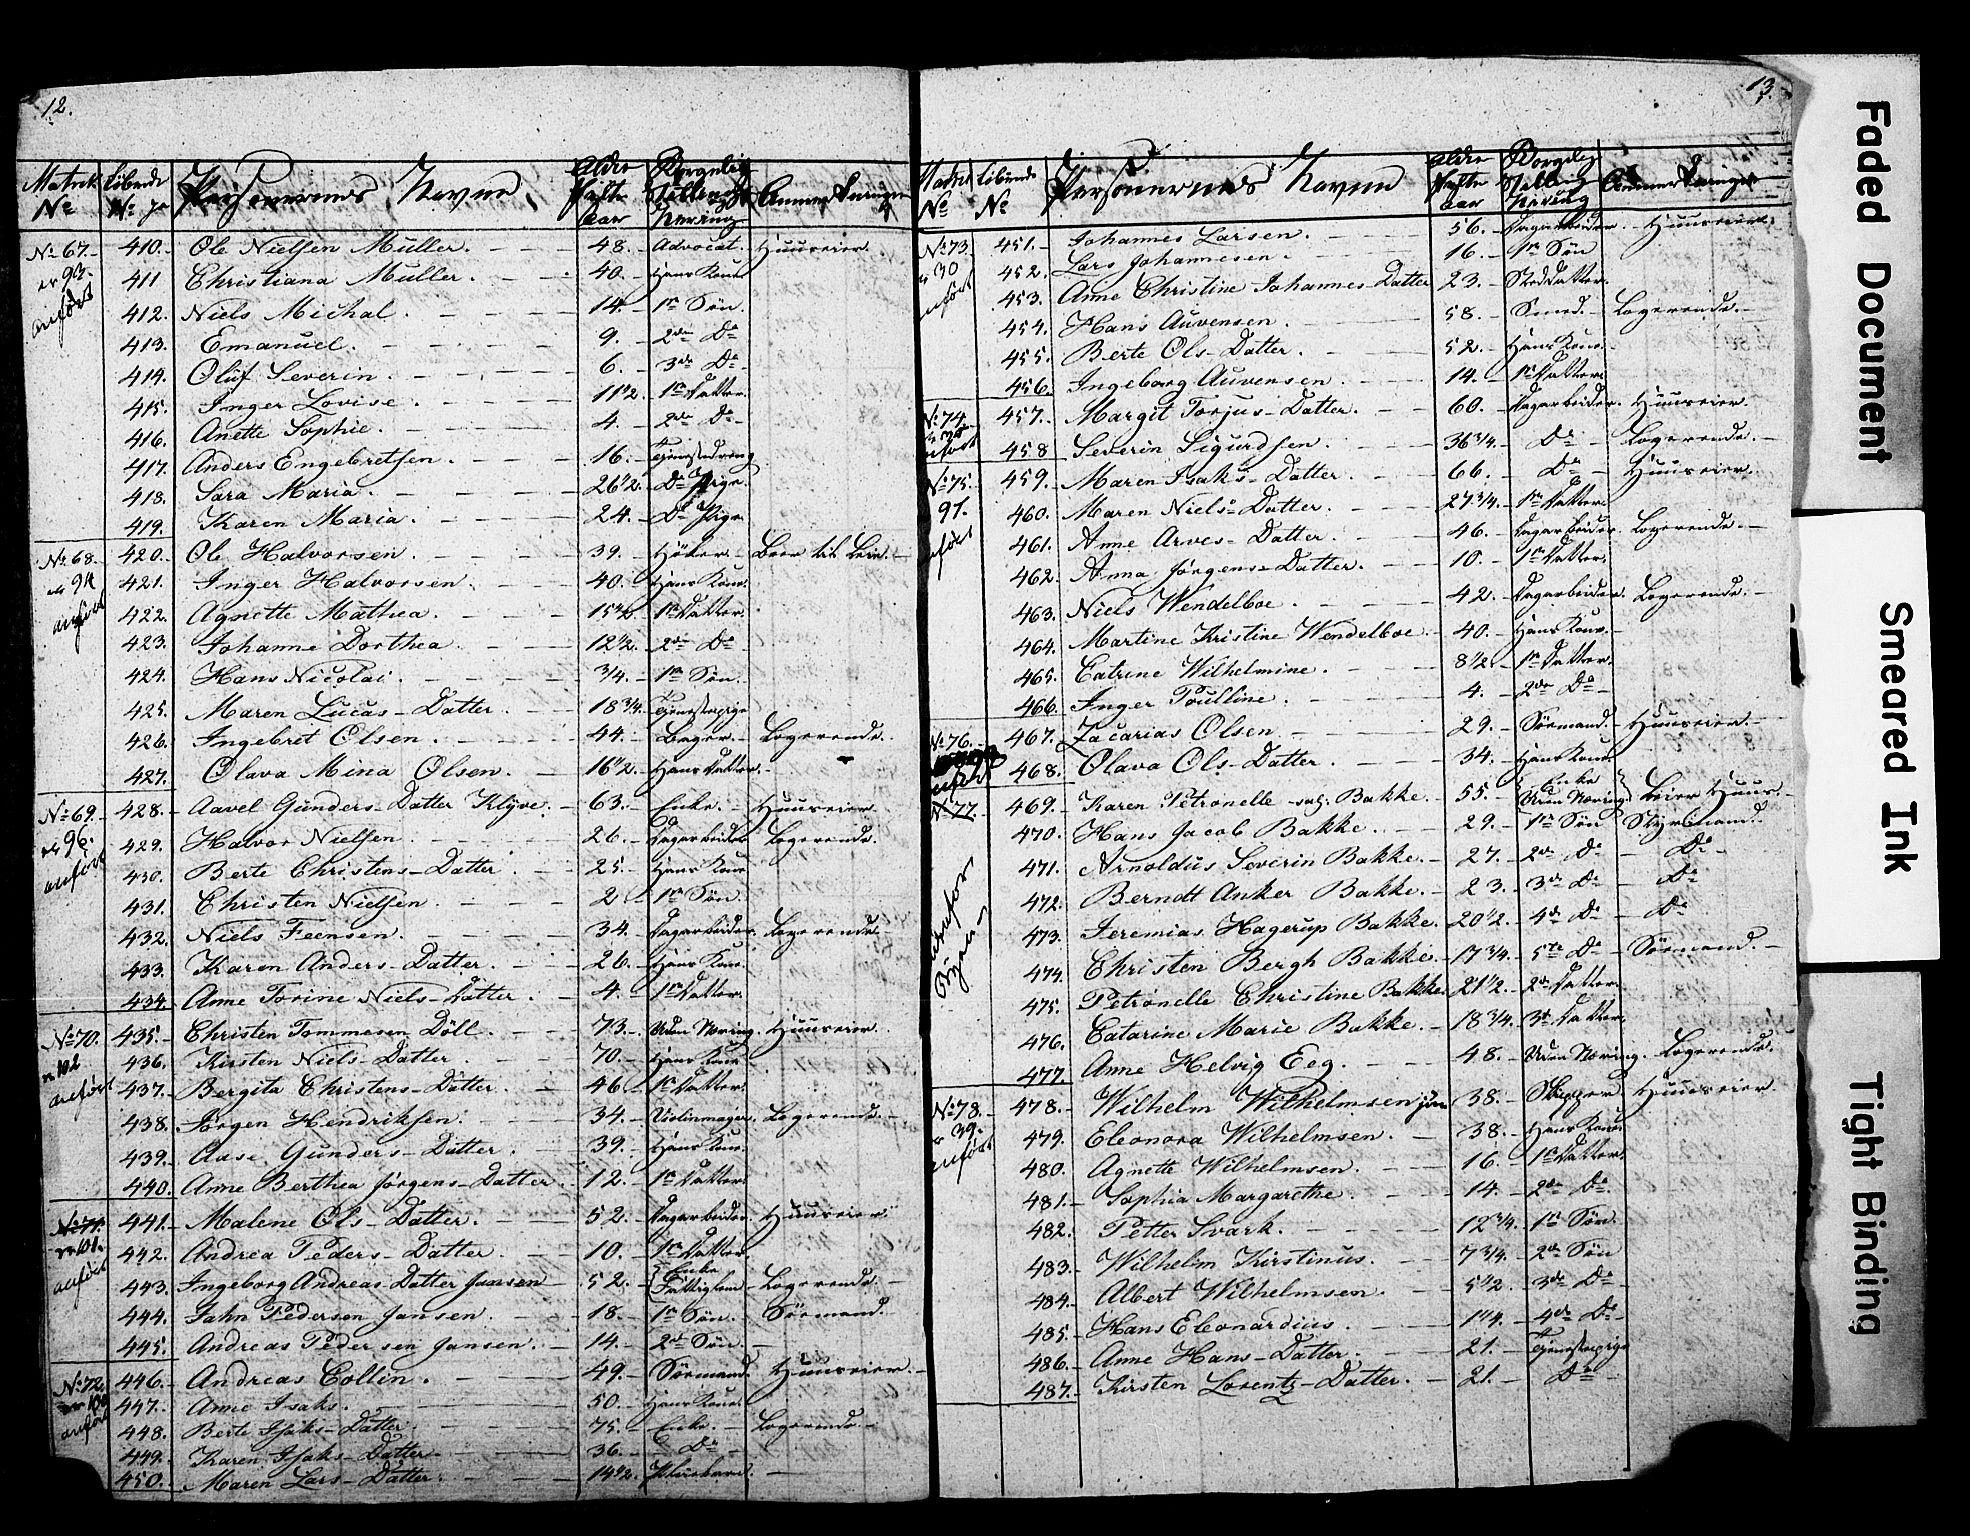 12.
Matrik No Löbende No Personernes Navne Alder Næste Aar Borgelig Stilling Næring Anmærkninger
No 67. 410. Ole Nielsen Müller. 48. Advocat. Huuseier.
er 93. 411 Christiana Müller. 40. Hans Kone
anført 412. Niels Michal. 14. 1e Søn.
413. Emanuel. 9. 2den Do
414. Oluf Severin. 6. 3de Do
415. Inger Lovise. 11 1/2. 1e Datter.
416. Anette Sophie. 4. 2den Do
417. Anders Engebretsen. 16. Tjenestedreng
418. Sara Maria. 26 1/2. Do Pige.
419. Karen Maria. 24. Do Pige
No 68. 420. Ole Halvorsen. 39. Höker. Boer til Leie.
er 94 421. Inger Halvorsen. 40. Hans Kone.
anført 422. Agnette Mathea. 15 1/2. 1e Datter.
423. Johanne Dorthea. 12 1/2. 2den Do
424. Hans Nicolai. 3/4. 1e Søn.
425. Maren Lucas-Datter. 18 3/4. Tjenestepige
426. Ingebret Olsen. 44. Bager. Logerende.
427. Olava Mina Olsen. 16 1/2. Hans Datter.
No 69. 428. Aavel Gunders-Datter Klyve. 63. Enke. Huuseier
er 96. 429. Halvor Nielsen. 26. Dagarbeider Logerende.
anført 430. Berte Christens-Datter. 25. Hans Kone
431. Christen Nielsen. 2. 1e Søn.
432. Niels Feensen. 34. Dagarbeider. Logerende.
433. Karen Anders-Datter. 26. Hans Kone.
434. Anne Torine Niels-Datter. 4. 1e Datter.
No 70. 435. Christen Tommesen Döll. 73. Uden Næring. Huuseier.
er 102 436. Kirsten Niels-Datter. 70. Hans Kone
anført 437. Bergita Christens-Datter. 46. 1e Datter.
438. Jørgen Hendriksen. 34. Violinmager. Logerende.
439. Aase Gunders-Datter. 39. Hans Kone.
440. Anne Berthea Jørgens-Datter. 12. 1e Datter.
No 71. 441. Malene Ols-Datter. 52. Dagarbeider. Huuseier
er 101. 442. Andrea Peders-Datter. 10. 1e Datter
anført 443. Ingeborg Andreas-Datter Jansen 52. Enke Fattiglem Logerende.
444. Jahn Pedersen Jansen. 18. 1e Søn. Sömand.
445. Andreas Pedersen Jansen. 14. 2de Søn.
No 72. 446. Andreas Collin. 49. Sömand. Huuseier.
er 100 447. Anne Isaks. 50. Hans Kone.
anført 448. Berte Isaks-Datter. 75. Enke. Logerende.
449. Karen Isaks-Datter 36. Do
450. Maren Lars-Datter. 14 1/2.
13.
Matrik No Löbende No Personernes Navne Alder Næste Aar Borgelig Stilling Næring Anmærkninger
No 73. 451. Johannes Larsen. 56. Dagarbeider. Huuseier.
er 30 452. Lars Johannesen. 16. 1e Søn
anført 453. Anne Christine Johannes-Datter 23. Steddatter.
454. Hans Auvensen. 58. Smed. Logerende.
455. Berte Ols-Datter. 52. Hans Kone.
456. Ingeborg Auvensen. 14. 1e Datter.
No 74 457. Margit Torjus-Datter. 60. Dagarbeider. Huuseier.
anført 458 Severin Sigurdsen. 36 3/4. Do Logerende.
No 75. 459. Maren Isaks-Datter. 66. Do Huuseier.
97. 460. Maren Niels-Datter. 27 3/4. 1e Datter.
anført 461. Anne Arves-Datter. 46. Dagarbeider Logerende.
462. Anna Jørgens-Datter. 10. 1e Datter.
463. Niels Wendelboe. 42. Dagarbeider. Logerende.
464. Martine Kristine Wendelboe. 40. Hans Kone.
465. Catrine Wilhelmine. 8 1/2. 1e Datter.
466. Inger Poulline. 4. 2den Do
No 76. 467. Zacarias Olsen. 29. Sömand. Huuseier.
anført 468. Olava Ols-Datter. 34. Hans Kone
No 77. 469. Karen Petronelle sal. Bakke. 55. Enke Uden Næring. Leier Huus.
470. Hans Jacob Bakke. 29. 1e Søn Styrmand.
471. Arnoldus Severin Bakke. 27. 2de Do Do
472. Berndt Anker Bakke. 23. 3de Do Do
Udenfor 473. Jeremias Hagerup Bakke. 20 1/2. 4de Do Do
Byen 474. Christen Bergh Bakke. 17 3/4. 5te Do Sömand.
475. Petronelle Christine Bakke. 21 1/2. 2de Datter.
476. Catarine Marie Bakke. 18 3/4. 3de Datter.
477. Anne Helvig Eeg. 48. Uden Næring. Logerende.
No 78. 478. Wilhelm Wilhelmsen jün 38. Skipper Huuseier.
er 39. 479. Eleonora Wilhelmsen. 38. Hans Kone
anført 480. Agnette Wilhelmsen. 16. 1e Datter.
481. Sophia Margarethe. 14. 2den Do
482. Petter Svark. 12 3/4. 1e Søn.
483. Wilhelm Kirstinus. 7 3/4. 2de Søn
484. Albert Wilhelmsen. 5 1/2. 3de Do
485. Hans Eleonardius. 1 1/4. 4de Do
486. Anne Hans-Datter. 21. Tjenestepige
487. Kirsten Lorentz-Datter. 21. Do
Faded Document
Smeared Ink
Tight Binding